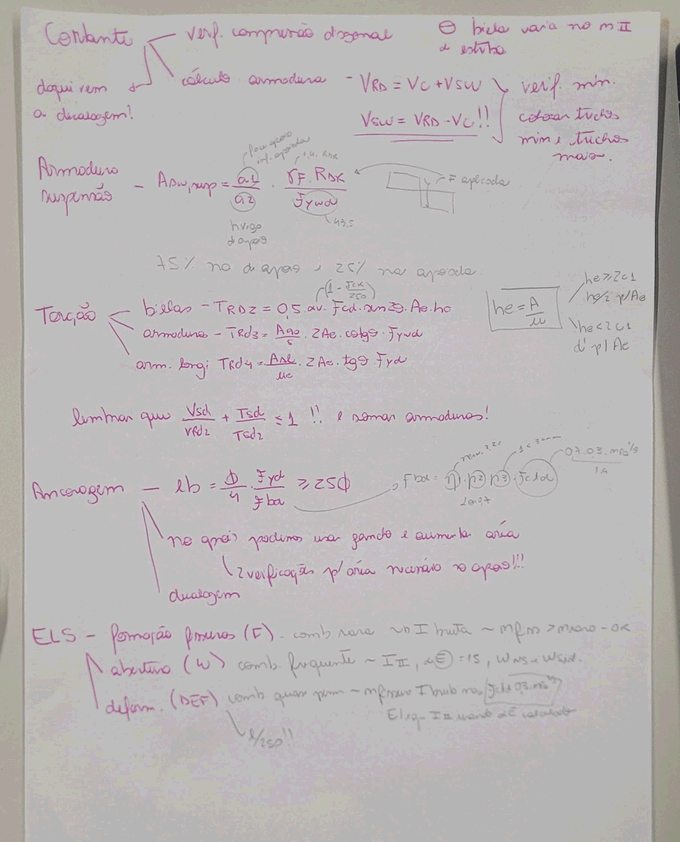 Cortante
verif. compressão diagonal
θ biela varia no m II
de estribo
daqui vem
a decalagem!
cálculo armadura - VRD = VC + VSW
VSW = VRD - VC!!
verif. mín.
colocar trechos
mín e trechos
maior.
Armadura
suspensão - ASW,sup = a1/a2 · γF. RDK / Fywd
1,4. RDK
F aplicada
43,5
h viga
d apoio
75% no d apoio e 25% na apoiada
Torção
bielas - TRD2 = 0,5. αv. Fcd. sen2θ. Ae. he
(1 - fck/250)
armadura - TRd3 = A90/s . 2Ae. cotgθ. Fywd
arm. longi TRd4 = Asl/ue . 2Ae. tgθ. Fyd
he = A/u
he ≥ 2c1
he/2 p/ Ae
he < 2c1
d' p/ Ae
lembrar que Vsd/VRd2 + Tsd/Tsd2 ≤ 1 !! e somar armaduras!
Ancoragem - lb = Φ/4 . Fyd/Fbd ≥ 25Φ
Fbd = η1. η2. η3. Fctd
0,7. 0,3. MPa^2/3
1,4
no apoio podemos usar gancho e aumentar área
2 verificações p/ área necessária no apoio!!!
decalagem
ELS - formação fissuras (F). comb rara no I bruta ~ - OK
abertura (W) comb frequente ~ I II, αE = 15,
deform. (DEF) comb quase perm ~ I bruta mas
l/250!!